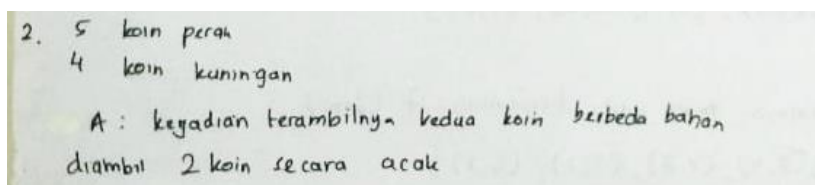 2. 5 koin perak
4 koin kuningan
A : kejadian terambilnya kedua koin berbeda bahan
diambil 2 koin secara acak